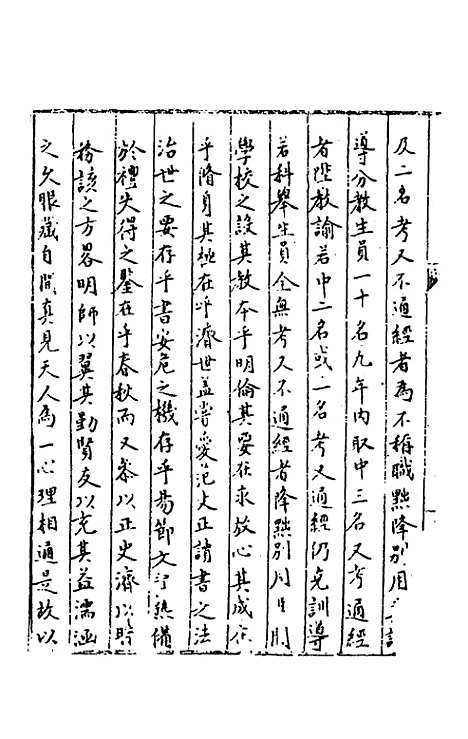 及二名考又不通經者為不稱職黜降別用訓
導分教生員一十名九年內取中三名又考通經
者陞教諭若中二名或一名考又通經仍充訓導
若科舉生員全無考又不通經者降黜別用且則
學校之設其教本乎明倫其要在求放心其成在
乎脩身其極在乎濟世蓋嘗愛范文正讀書之法
治世之要存乎書安危之機存乎易節文之備
於禮失得之鑒在乎春秋而又叅以正史濟以時
務該之方畧明師以翼其勤賢友以充其益濡涵
之久眼藏自開真見天人為一心理相通是故以